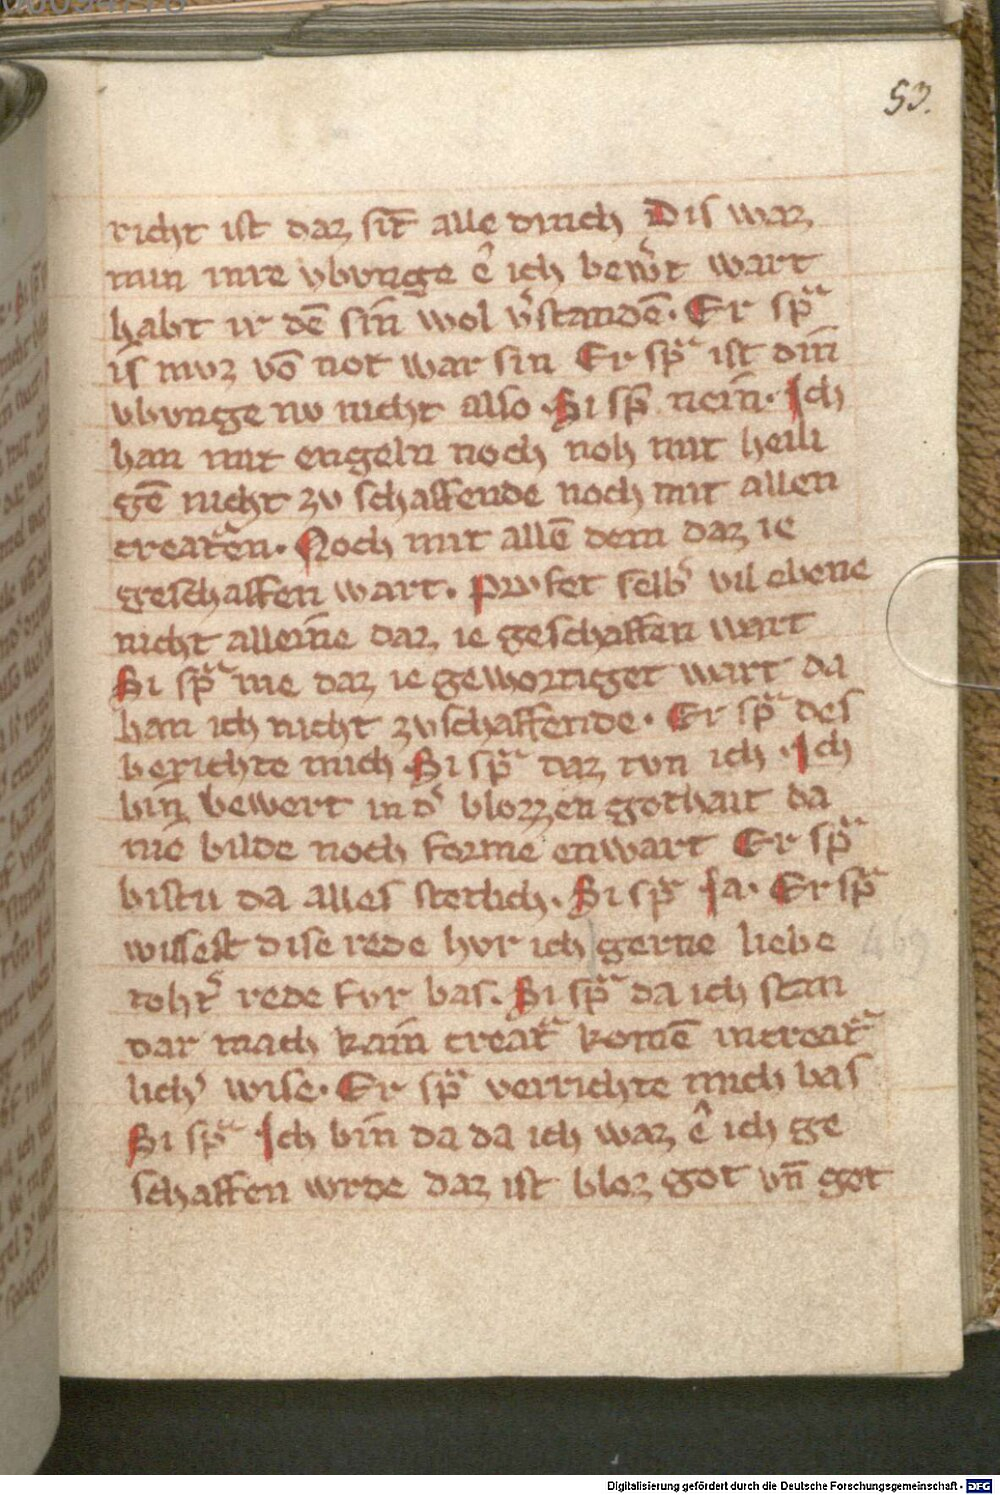 53.
richt ist daz sīt alle druch Dis waz
min inre vbvnge ê ich bew̄t wart
habt ir dē sin̄ wol v̄standē. Er spᵃ
is mvz vō not war sin Er spᵃ ist din̄
vbvnge nv nicht also. Si sp̄ nein. Ich
han mit engeln noch noh mit heili
gē nicht zv schaffende noch mit allen
creatᵃen. Noch mit allē dem daz ie
geschaffen wart. Prvfet selb' vil ebene
nicht alleine daz ie geschaffen wart
Si spᵃ me daz ie gewortiget wart da
han ich nicht zvschaffende. Er spᵃ des
berichte mich Si spᵃ daz tvn ich. Ich
bin bewert in d' blozzen gothait da
nie bilde noch forme enwart Er spᵃ
bistu da alles stetlich. Si spᵃ Ja. Er spᵃ
wissest dise rede hvr ich gerne liebe
toht' rede fvr bas. Si spᵃ da ich stan
dar mach kain creatᵃ komē in creatᵃ
lich' wise. Er spᵃ verrichte mich bas
Si spᵃ Ich bin da da ich waz ê ich ge
schaffen wrde daz ist bloz got vn̄ got
Digitalisierung gefördert durch die Deutsche Forschungsgemeinschaft - DFG